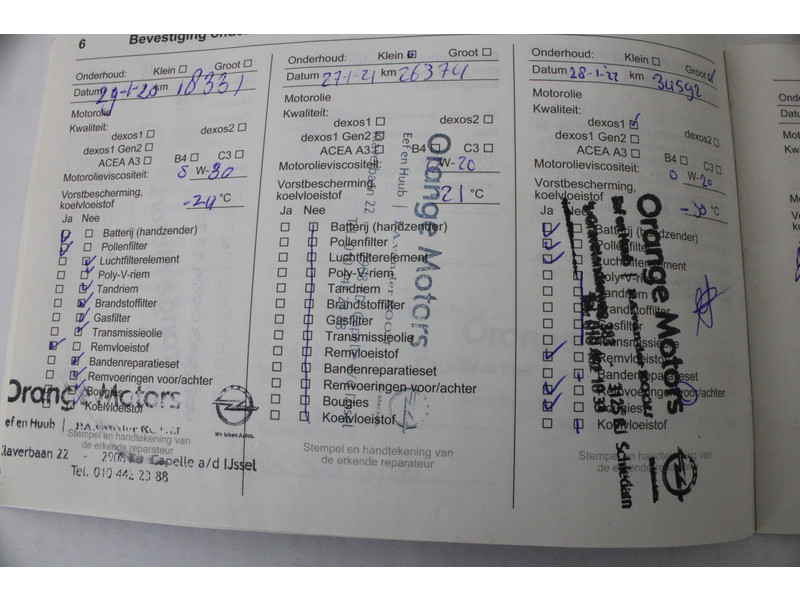 6 Bevestiging onder
Onderhoud: Klein ☐ Groot ☐
Datum 29-1-20 km 18331
Motorolie
Kwaliteit:
dexos1 ☐ dexos2 ☐
dexos1 Gen2 ☐
ACEA A3 ☐ B4 ☐ C3 ☐
Motorolieviscositeit: W-30
Vorstbescherming,
koelvloeistof °C
Ja Nee
Batterij (handzender)
Pollenfilter
Luchtfilterelement
Poly-V-riem
Tandriem
Brandstoffilter
Gasfilter
Transmissieolie
Remvloeistof
Bandenreparatieset
Remvoeringen voor/achter
Bougies
Koelvloeistof
Stempel en handtekening van
de erkende reparateur
Orange Motors
Eef en Huub
Klaverbaan 22 - Capelle a/d IJssel
Tel. 010 442 23 88
Wir leben Autos.
Onderhoud: Klein ☑ Groot ☐
Datum 27-1-21 km 26374
Motorolie
Kwaliteit:
dexos1 ☐ dexos2 ☐
dexos1 Gen2 ☐
ACEA A3 ☐ B4 C3 ☐
Motorolieviscositeit: 0 W-20
Vorstbescherming,
koelvloeistof 21 °C
Ja Nee
Batterij (handzender)
Pollenfilter
Luchtfilterelement
Poly-V-riem
Tandriem
Brandstoffilter
Gasfilter
Transmissieolie
Remvloeistof
Bandenreparatieset
Remvoeringen voor/achter
Bougies
Koelvloeistof
Stempel en handtekening van
de erkende reparateur
Orange Motors
Eef en Huub
Klaverbaan 22
Onderhoud: Klein ☐ Groot ☑
Datum 28-1-22 km 34592
Motorolie
Kwaliteit:
dexos1 ☑ dexos2 ☐
dexos1 Gen2 ☐
ACEA A3 ☐ B4 ☐ C3 ☐
Motorolieviscositeit: 0 W-20
Vorstbescherming,
koelvloeistof -30 °C
Ja Nee
Batterij (handzender)
Pollenfilter
Luchtfilterelement
Poly-V-riem
Tandriem
Brandstoffilter
Gasfilter
Transmissieolie
Remvloeistof
Bandenreparatieset
Remvoeringen voor/achter
Bougies
Koelvloeistof
Stempel en handtekening van
de erkende reparateur
Orange Motors
Eef en Huub
Schiedam
Onderho
Datu
Mot
Kwa